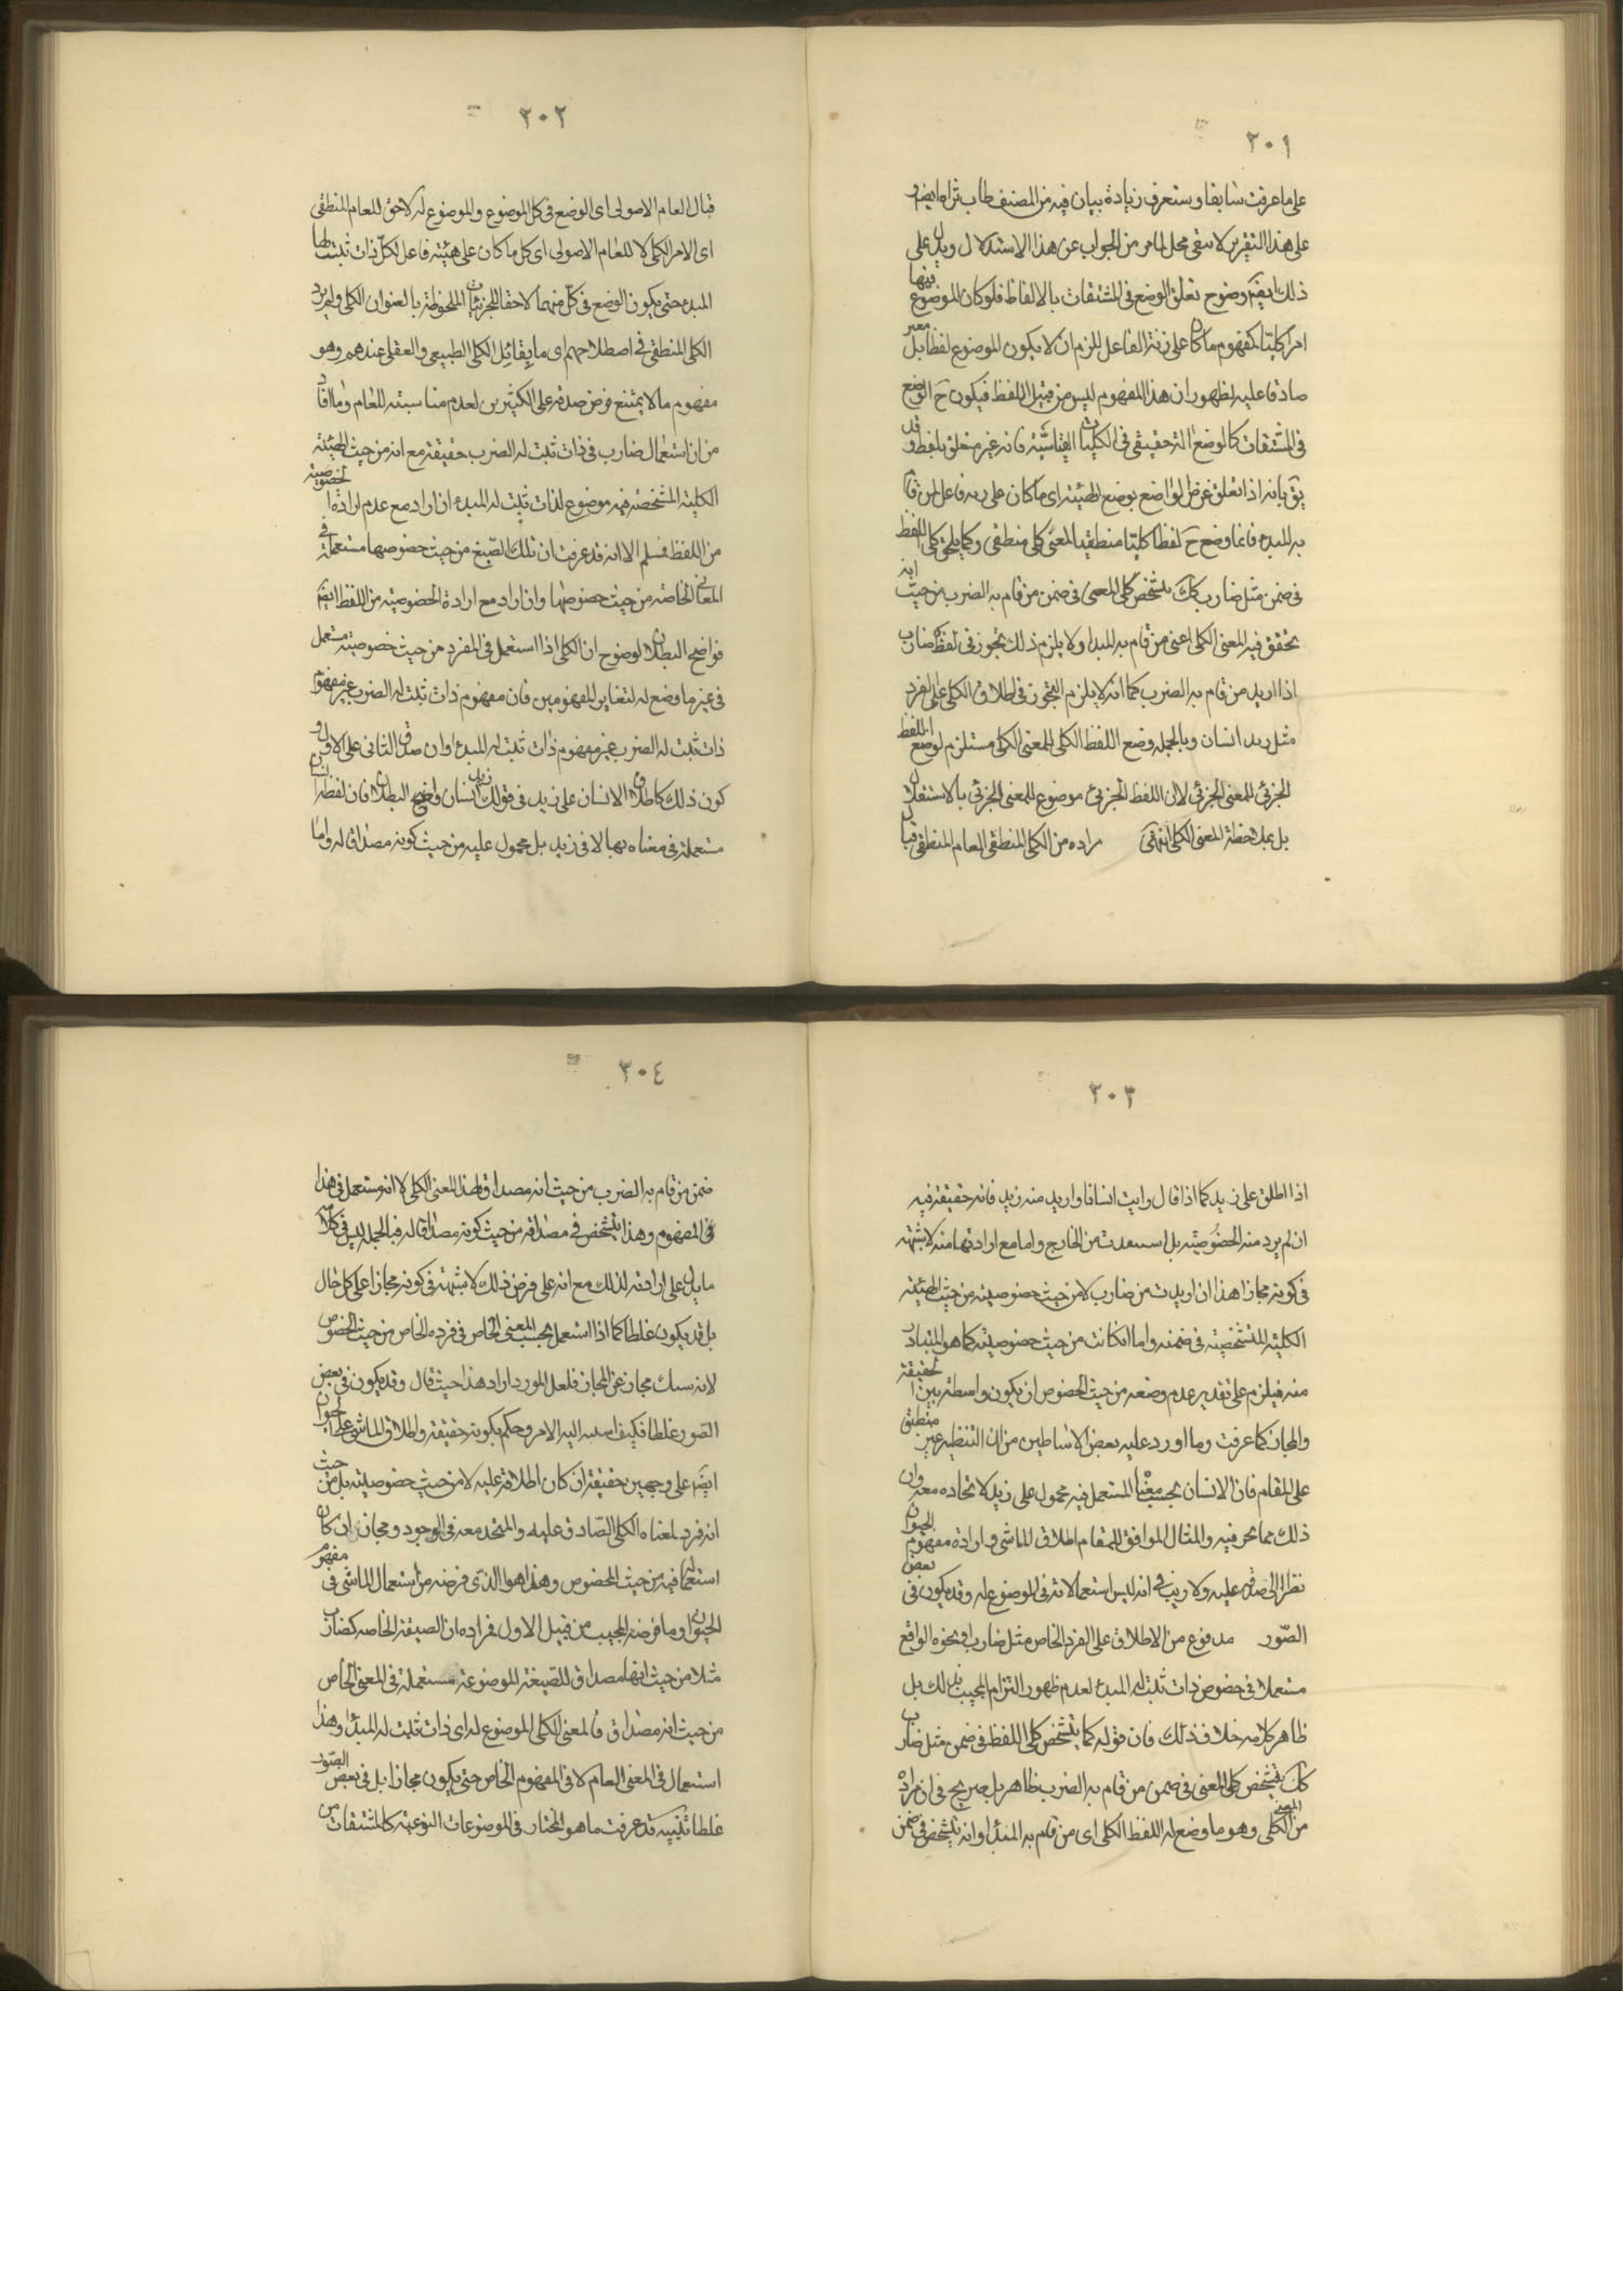 ٣٠١
على ما عرفت سابقا وستعرف زيادة بيان فيه من المصنف طاب ثراه ايضا و
على هذا التقرير لا يبقى محل لما مر من الجواب عن هذا الاستدلال ويدل على
ذلك ايضا وضوح تعلق الوضع في المشتقات بالالفاظ فلو كان الموضوع فيها
امرا كليا كمفهوم ما كان على زنة الفاعل للزم ان لا يكون الموضوع لفظا بل معبر
صادقا عليه لظهور ان هذا المفهوم ليس من قبيل اللفظ فيكون ح الوضع
في المشتقات كالوضع الحقيقي في الكليات القياسية فانه غير متعلق بلفظ وقد
يق بانه اذا تعلق غرض الواضع بوضع الهيئة اى ما كان على زنة فاعل لمن قام
به المبدء فانما وضع ح لفظا كليا منطقيا لمعنى كلى منطقى وكما يلحق كلى اللفظ
في ضمن مثل ضارب كك يتشخص كلى المعنى في ضمن من قام به الضرب من حيث انه
تحقق فيه المعنى الكلى اعنى من قام به المبدا ولا يلزم ذلك تجوز في لفظ ضارب
اذا اريد من قام به الضرب كما انه لا يلزم التجوز في اطلاق الكلى على الفرد
مثل زيد انسان وبالجملة وضع اللفظ الكلى للمعنى الكلى مستلزم لوضع اللفظ
الجزئى للمعنى الجزئى لا ان اللفظ الجزئى موضوع للمعنى الجزئى بالاستقلال
بل بملاحظة المعنى الكلى انتهى مراده من الكلى المنطقى العام المنطقى قبال
٣٠٢
قبال العام الاصولى اى الوضع في كل الموضوع والموضوع له لاحق للعام المنطقى
اى الامر الكلى لا للعام الاصولى اى كل ما كان على هيئة فاعل لكل ذات ثبتت لها
المبدء حتى يكون الوضع في كل منهما لاحقا للجزئيات الملحوظة بالعنوان الكلى ولم يرد
الكلى المنطقى في اصطلاحهم اى ما يقابل الكلى الطبيعى والعقلى عندهم وهو
مفهوم ما لا يمتنع فرض صدقه على الكثيرين لعدم مناسبته للمقام وما افاد
من ان استعمال ضارب في ذات ثبت له الضرب حقيقة مع انه من حيث الهيئة
الكلية المتشخصة فيه موضوع لذات ثبت له المبدء ان اراد مع عدم ارادة الخصوصية
من اللفظ فمسلم الا انه قد عرفت ان تلك الصيغ من حيث خصوصها مستعملة في
المعانى الخاصة من حيث خصوصها وان اراد مع ارادة الخصوصية من اللفظ ايضا
فواضح البطلان لوضوح ان الكلى اذا استعمل في الفرد من حيث خصوصيته مستعمل
في غير ما وضع له لتغاير المفهومين فان مفهوم ذات ثبت له الضرب غير مفهوم
ذات ثبت له الضرب غير مفهوم ذات ثبت له المبدء وان صدق الثانى على الاول و
كون ذلك كاطلاق الانسان على زيد في قولك زيد انسان واضح البطلان فان لفظ انسان
مستعملة في معناه بها لا في زيد بل محمول عليه من حيث كونه مصداقا له واما
٣٠٣
اذا اطلق على زيد كما اذا قال رايت انسانا واريد منه زيد فانه حقيقة فيه
ان لم يرد منه الخصوصية بل استفيدت من الخارج واما مع ارادتها منه لا شبهة
في كونه مجازا هذا ان اريدت من ضارب لا من حيث خصوصيته من حيث الهيئة
الكلية المتشخصة في ضمنه واما ان كانت من حيث خصوصيته كما هو المتبادر
منه فيلزم على تقدير عدم وضعه من حيث الخصوص ان يكون واسطة بين الحقيقة
والمجاز كما عرفت وما اورد عليه بعض الاساطين من ان التنظير غير منطبق
على المقام فان الانسان بحسب معناه المستعمل فيه محمول على زيد لاتحاده معه واين
ذلك مما نحن فيه والمثال الموافق للمقام اطلاق الماشى وارادة مفهوم الحيوان
نظرا الى صدقه عليه ولا ريب في انه ليس استعمالا له في الموضوع له وقد يكون في بعض
الصور مدفوع من الاطلاق على الفرد الخاص مثل ضارب ونحوه الواقع
مستعملا في خصوص ذات ثبت له المبدء لعدم ظهور التزام المجيب بذلك بل
ظاهر كلامه خلاف ذلك فان قوله كما يتشخص كلى اللفظ في ضمن مثل ضارب
كك يتشخص كلى المعنى في ضمن من قام به الضرب ظاهر بل صريح في ان مراده
من الكلى المعنى وهو ما وضع له اللفظ الكلى اى من قام به المبدا وانه يتشخص في ضمن
٣٠٤
ضمن من قام به الضرب من حيث انه مصداق لهذا المعنى الكلى لا انه مستعمل في هذا
في المفهوم وهذا يتشخص في مصداقه من حيث كونه مصداقا له فبالجملة ليس في كلامه
ما يدل على ارادته لذلك مع انه على فرض ذلك لا شبهة في كونه مجازا على كل حال
بل قد يكون غلطا كما اذا استعمل بحسب المعنى الخاص في فرده الخاص من حيث الخصوص
لانه سبك مجاز عن المجاز فلعل المورد اراد هذا حيث قال وقد يكون في بعض
الصور غلطا فكيف اسند اليه الامر وحكم بكونه حقيقة واطلاق الماشى على الحيوان
ايضا على وجهين حقيقة ان كان اطلاقه عليه لا من حيث خصوصيته بل من حيث
انه فرد لمعناه الكلى الصادق عليه والمتحد معه في الوجود ومجاز ان كان
استعماله فيه من حيث الخصوص وهذا هو الذى فرضه من استعمال الماشى في مفهوم
الحيوان وما فرضه المجيب من قبيل الاول فمراده ان الصيغة الخاصه كضارب
مثلا من حيث انها مصداق للصيغة الموضوعة مستعملة في المعنى الخاص
من حيث انه مصداق للمعنى الكلى الموضوع له اى ذات ثبت له المبدا وهذا
استعمال في المعنى العام لا في المفهوم الخاص حتى يكون مجازا بل في بعض الصور
غلطا تنبيه قد عرفت ما هو المختار في الموضوعات النوعية كالمشتقات من